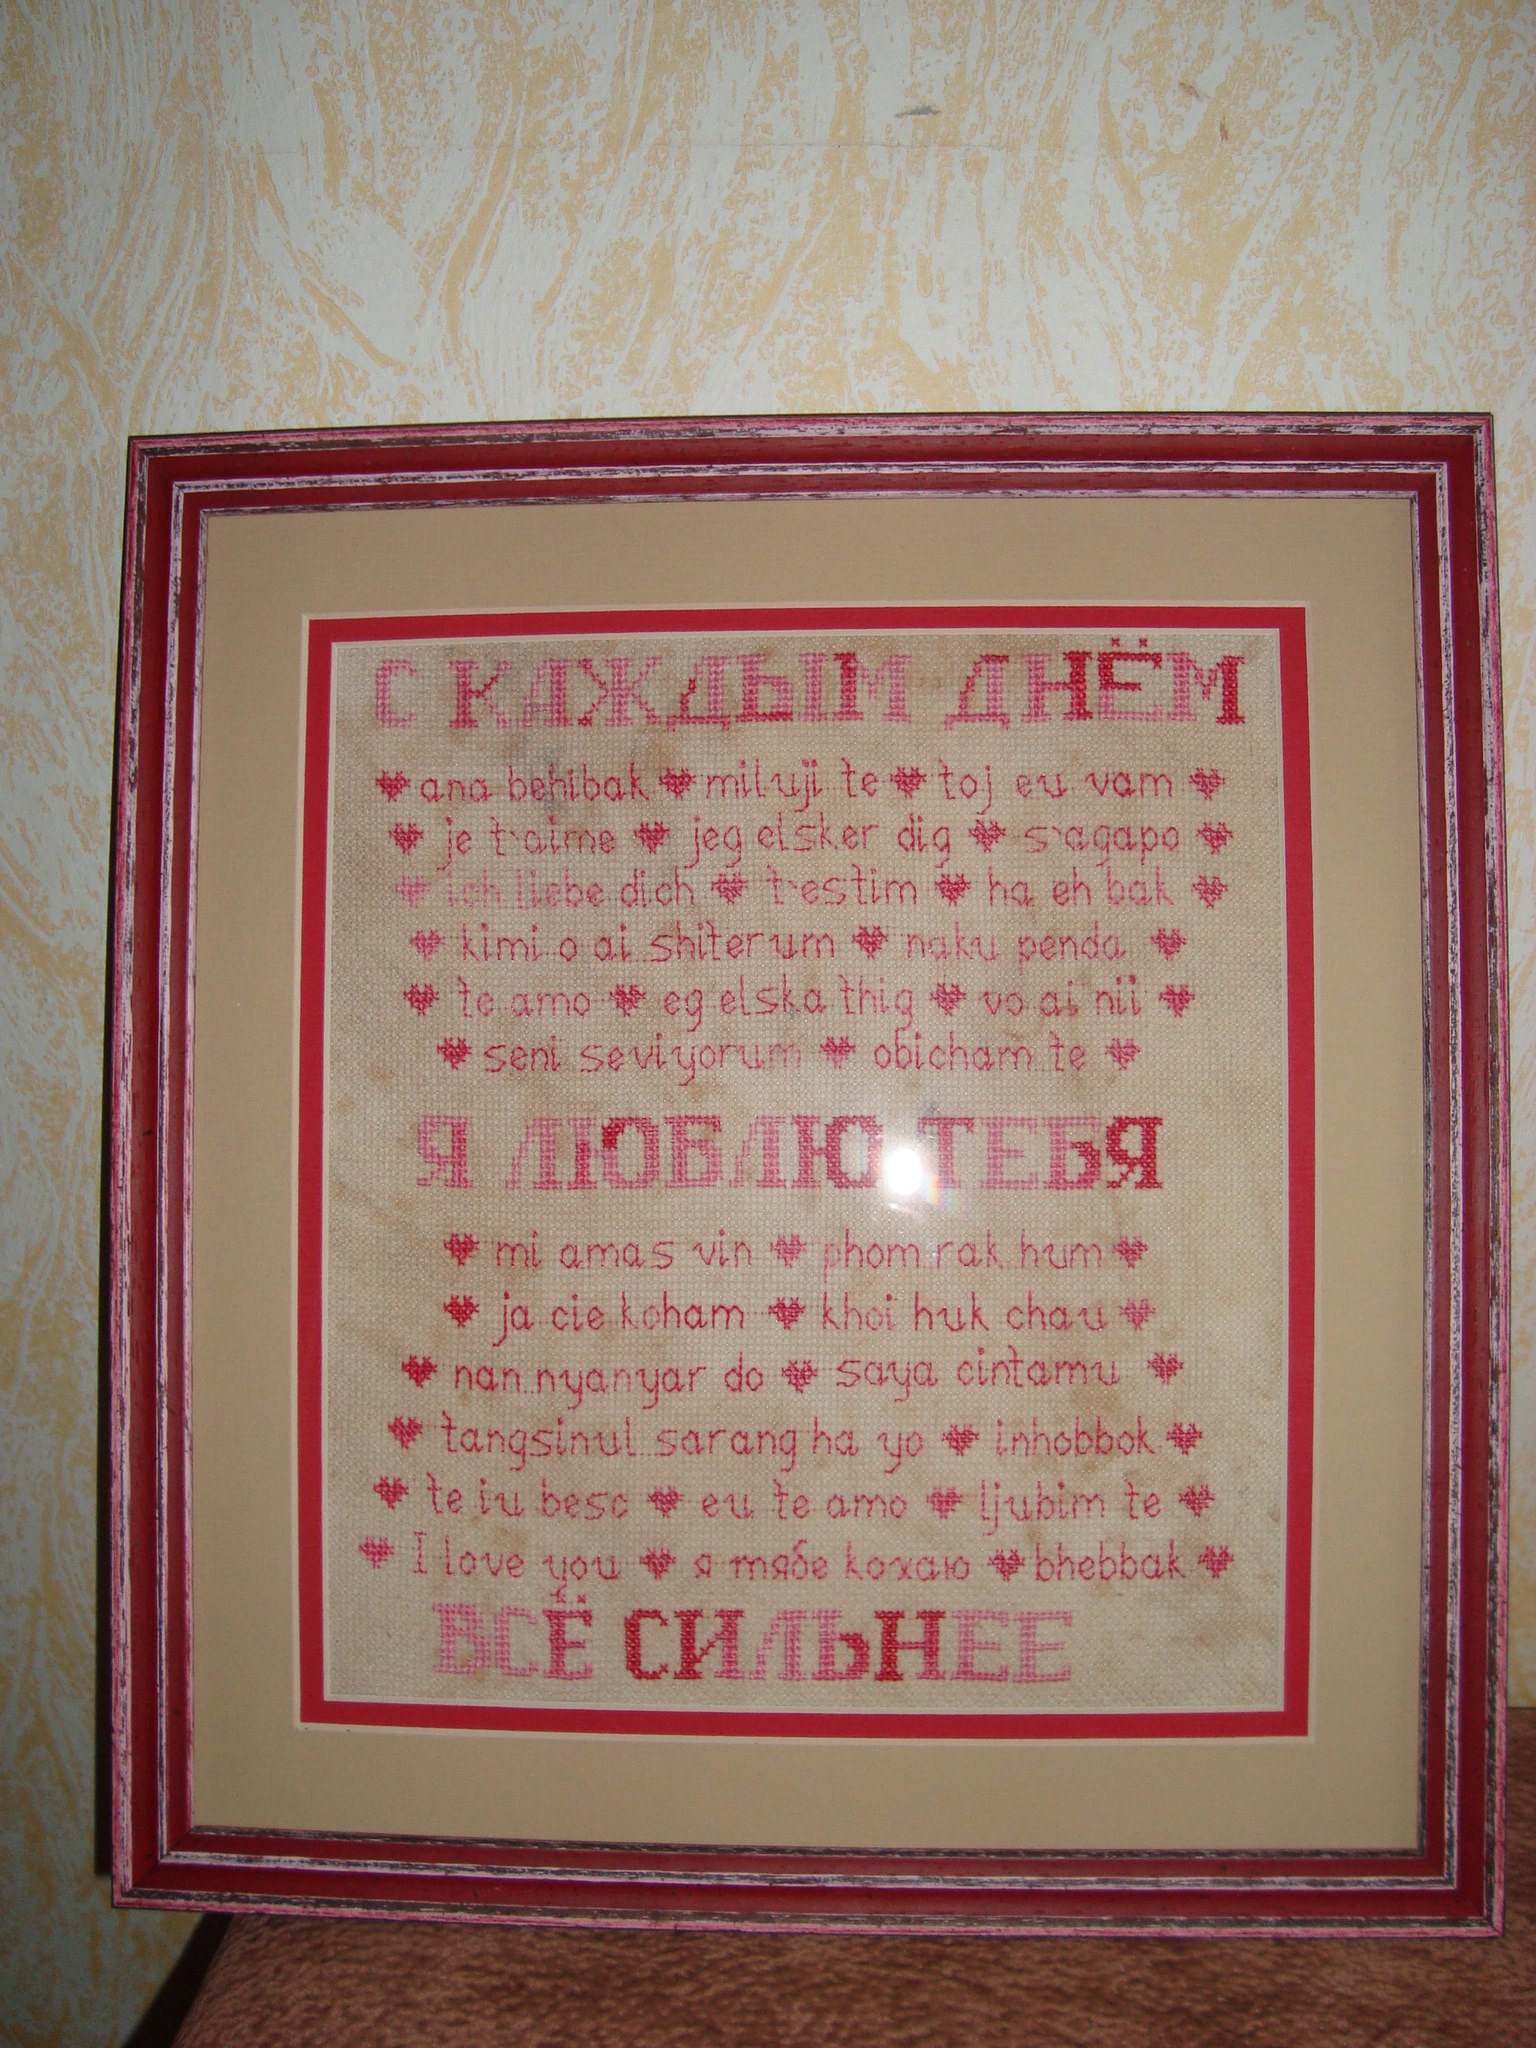 С КАЖДЫМ ДНЁМ
ana behibak miluji te toj eu vam
je t'aime jeg elsker dig s'agapo
ich liebe dich t'estim ha eh bak
kimi o ai shiterum naku penda
te amo eg elska thig vo ai nii
seni seviyorum obicham te
Я ЛЮБЛЮ ТЕБЯ
mi amas vin phom rak hum
ja cie koham khoi huk chau
nan nyanyar do saya cintamu
tangsinul sarang ha yo inhobbok
te iu besc eu te amo ljubim te
I love you я тябе кохаю bhebbak
ВСЁ СИЛЬНЕЕ